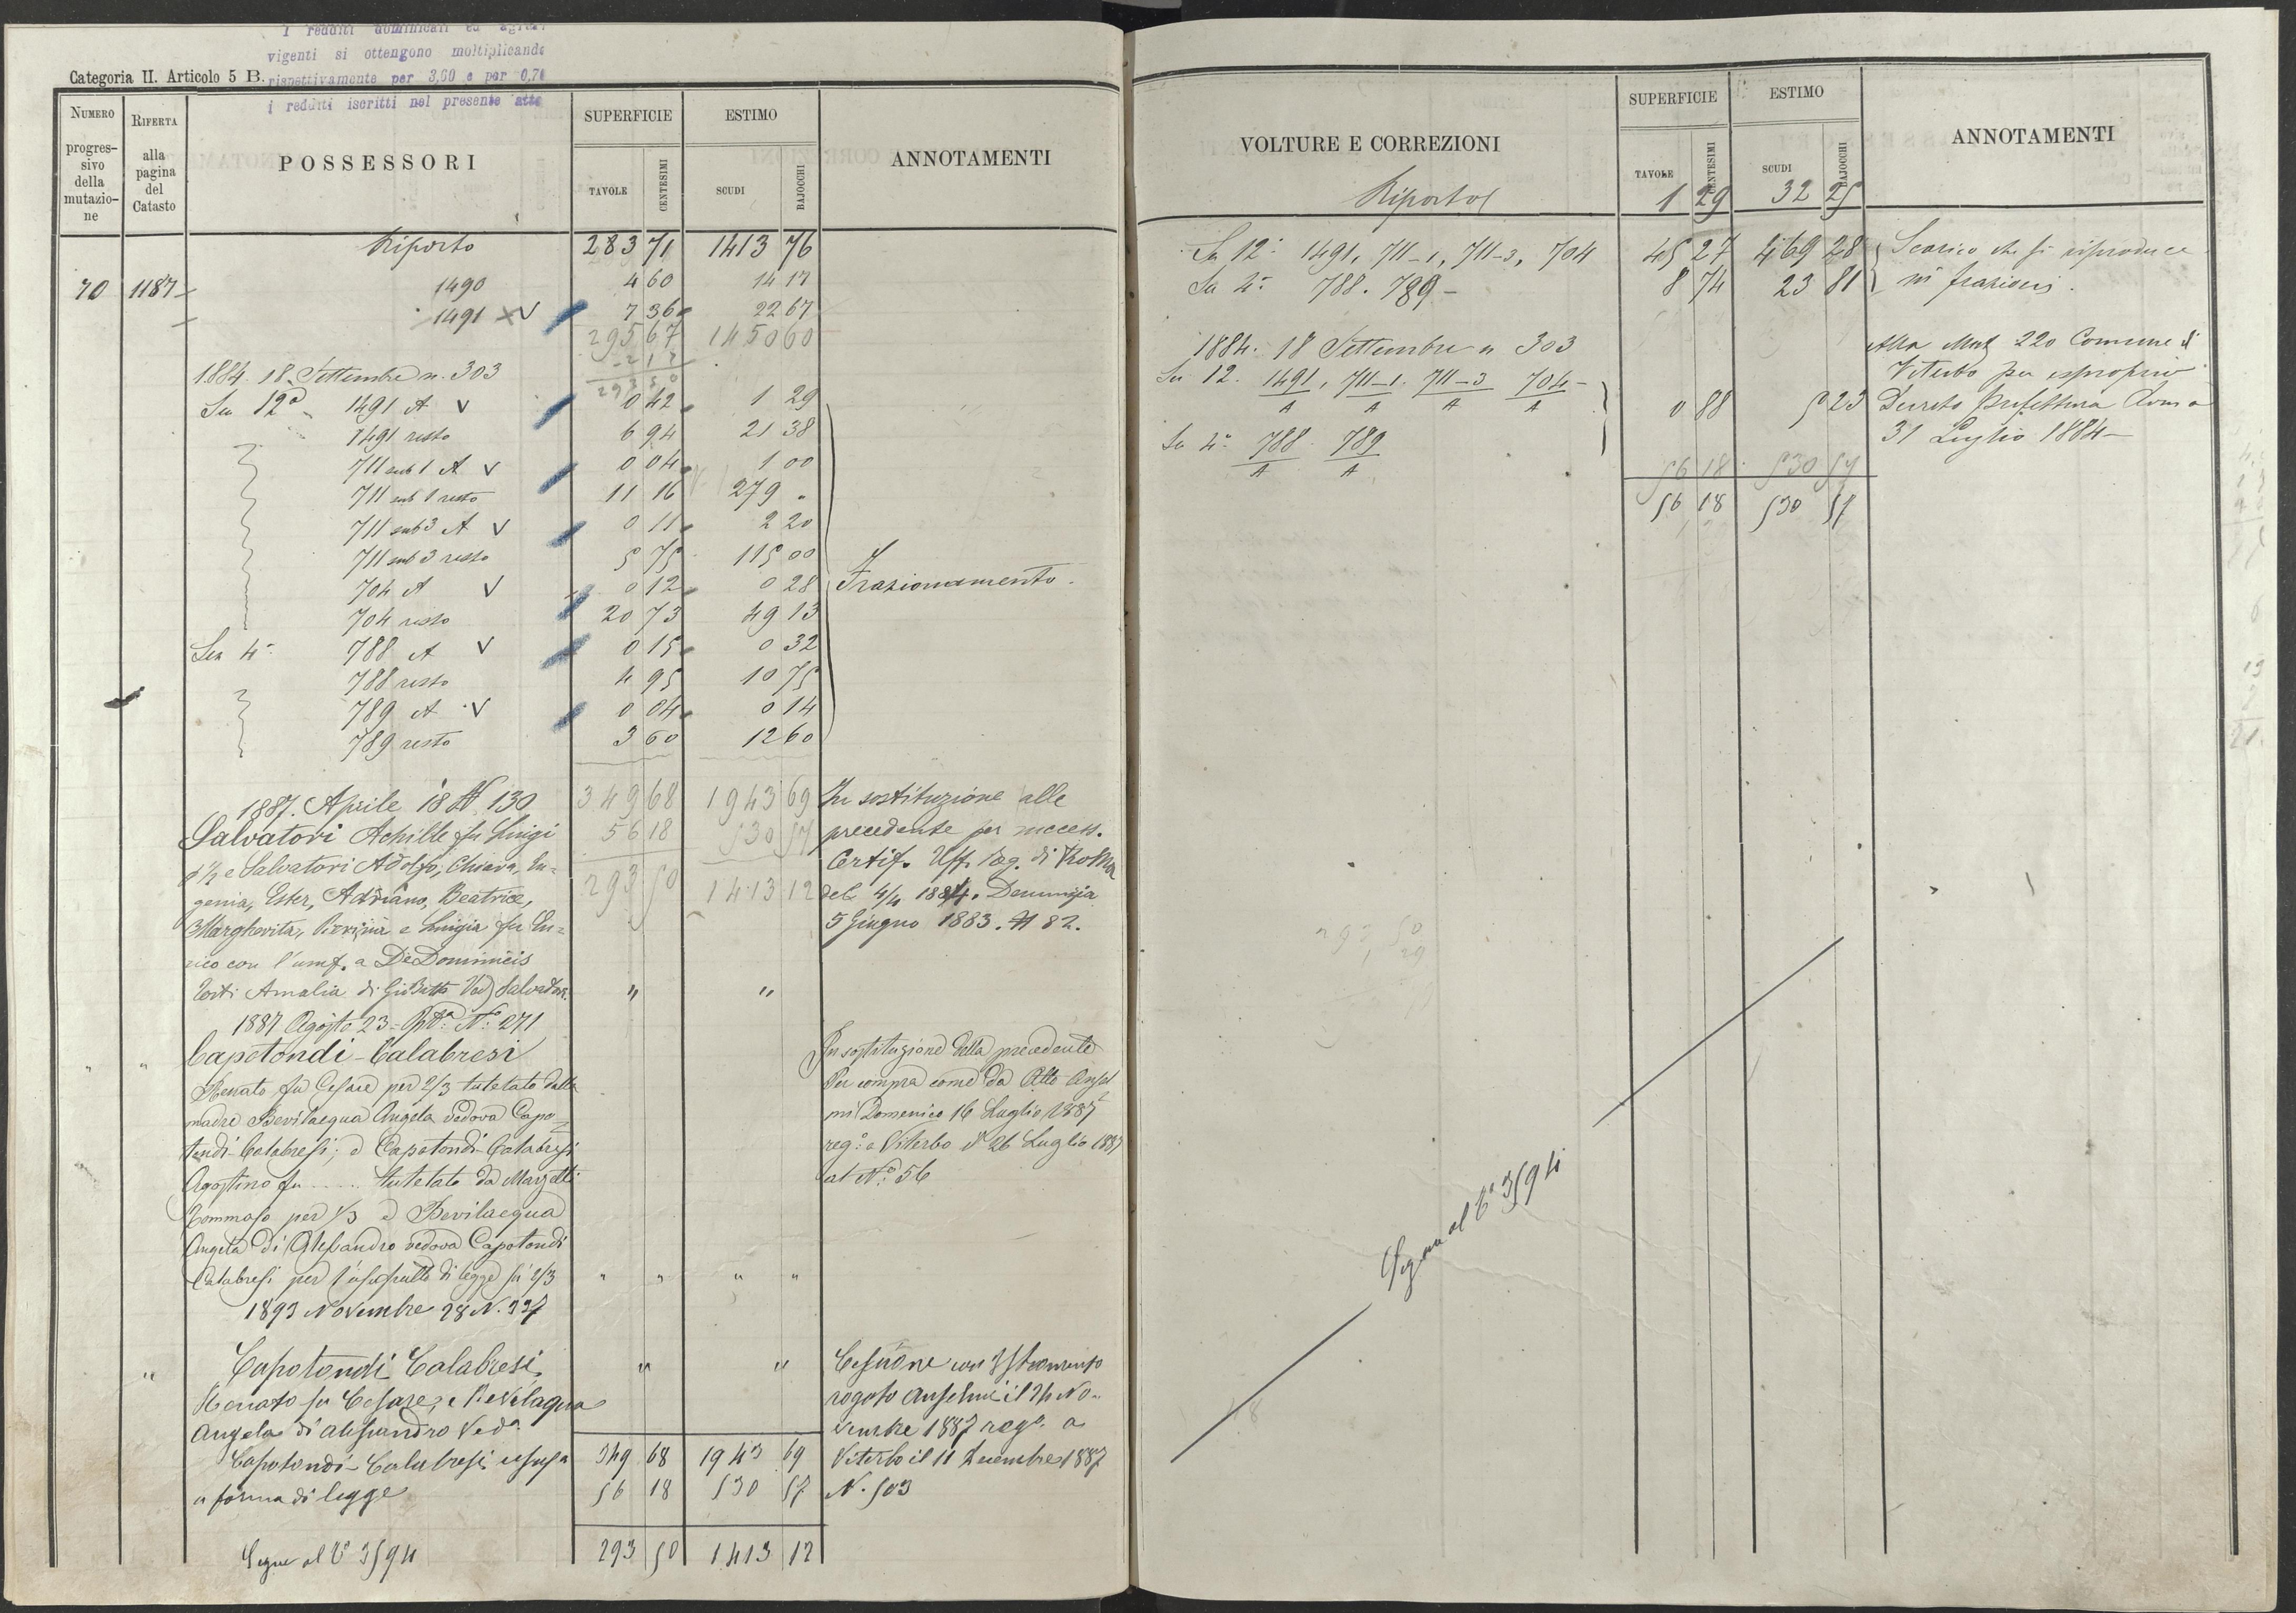 I redditi dominicali ed agrar.
vigenti si ottengono moltiplicando
rispettivamente per 3,60 e per 0,70
i redditi iscritti nel presente atto
Categoria II. Articolo 5 B.
NUMERO progres-sivo della mutazio-ne
RIFERTA alla pagina del Catasto
POSSESSORI
SUPERFICIE TAVOLE CENTESIMI
ESTIMO SCUDI BAJOCCHI
ANNOTAMENTI
Riporto 283 71 1413 76
70 1187 1490 4 60 14 17
1491 × V 7 36 22 67
295 67 1450 60
2 17
293 50
1884. 18 Settembre n. 303
Sez 12a 1491 A V 0 42 1 29
1491 resto 6 94 21 38
711 sub 1 A V 0 04 1 00
711 sub 1 resto 11 16 279 "
711 sub 3 A V 0 11 2 20
711 sub 3 resto 5 75 115 00
704 A V 0 12 0 28 Frazionamento.
704 resto 20 73 49 13
Sez 4a 788 A V 0 15 0 32
788 resto 4 95 10 75
789 A V 0 04 0 14
789 resto 3 60 12 60
1887. Aprile 18 N. 130 349 68 1943 69 In sostituzione alle
Salvatori Achille fu Luigi 56 18 530 57 precedente per success.
p ½ e Salvatori Adolfo, Chiara, Eu- Certif. Uff. Reg. di Roma
genia, Ester, Adriano, Beatrice, 293 50 1413 12 del 4/4 1884. Denunzia
Margherita, Pierina e Luigia fu En- 5 Giugno 1883. N 82.
rico con l'usuf. a De Dominicis
Torti Amalia di Gio Batta Ved Salvatori " "
1887 Agosto 23 N.° 271
Capotondi-Calabresi In sostituzione della precedente
Renato fu Cesare per 2/3 tutelato dalla Per compra come da Atto Ansel
madre Bevilacqua Angela vedova Capo- mi Domenico 16 Luglio 1887
tondi-Calabresi; e Capotondi-Calabresi reg.° a Viterbo il 26 Luglio 1887
Agostino fu ...... tutelato da Marzetti al N.° 56
Tommaso per 1/3 e Bevilacqua
Angela di Alessandro vedova Capotondi
Calabresi per l'usufrutto di legge su 2/3 " " " "
1893 Novembre 28 N. 337
" Capotondi Calabresi " " Cessione con Istromento
Renato fu Cesare, e Bevilaqua rogato Anselmi il 24 No-
Angela di Alessandro Ved.a vembre 1887 reg.° a
Capotondi-Calabresi usuf.a 349 68 1943 69 Viterbo il 11 Decembre 1887
a forma di legge 56 18 530 57 N. 503
Segue al C° 3594 293 50 1413 12
VOLTURE E CORREZIONI
SUPERFICIE TAVOLE CENTESIMI
ESTIMO SCUDI BAJOCCHI
ANNOTAMENTI
Riporto 1 29 32 25
Sez 12a 1491, 711-1, 711-3, 704 45 27 469 28 Scarico che si riproduce
Sez 4a 788. 789 - 8 74 23 81 in frazioni.
1884. 18 Settembre n 303 Alla Mut 220 Comune di
Sez 12. 1491/A, 711-1/A. 711-3/A 704/A - Viterbo per esproprio
0 88 5 23 Decreto Prefettura Roma
Sez 4a 788/A. 789/A 31 Luglio 1884-
56 18 530 57
56 18 530 57
293 50
Segue al C° 3594